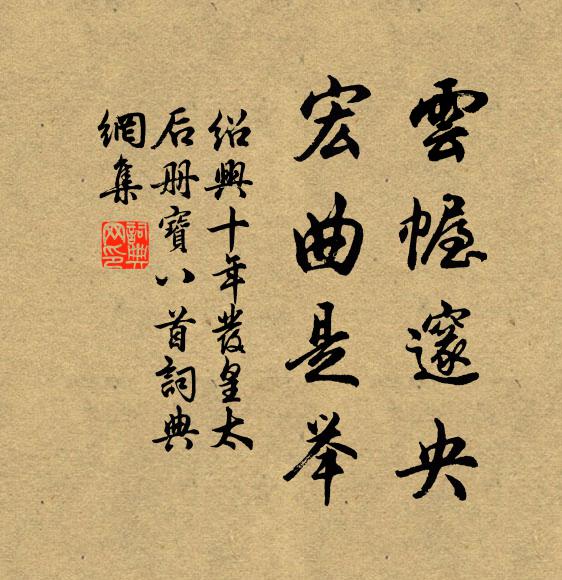 雲幄邃央
宏曲是举
绍興十年發皇太
后册寶八首詞典
網集
詞典網印